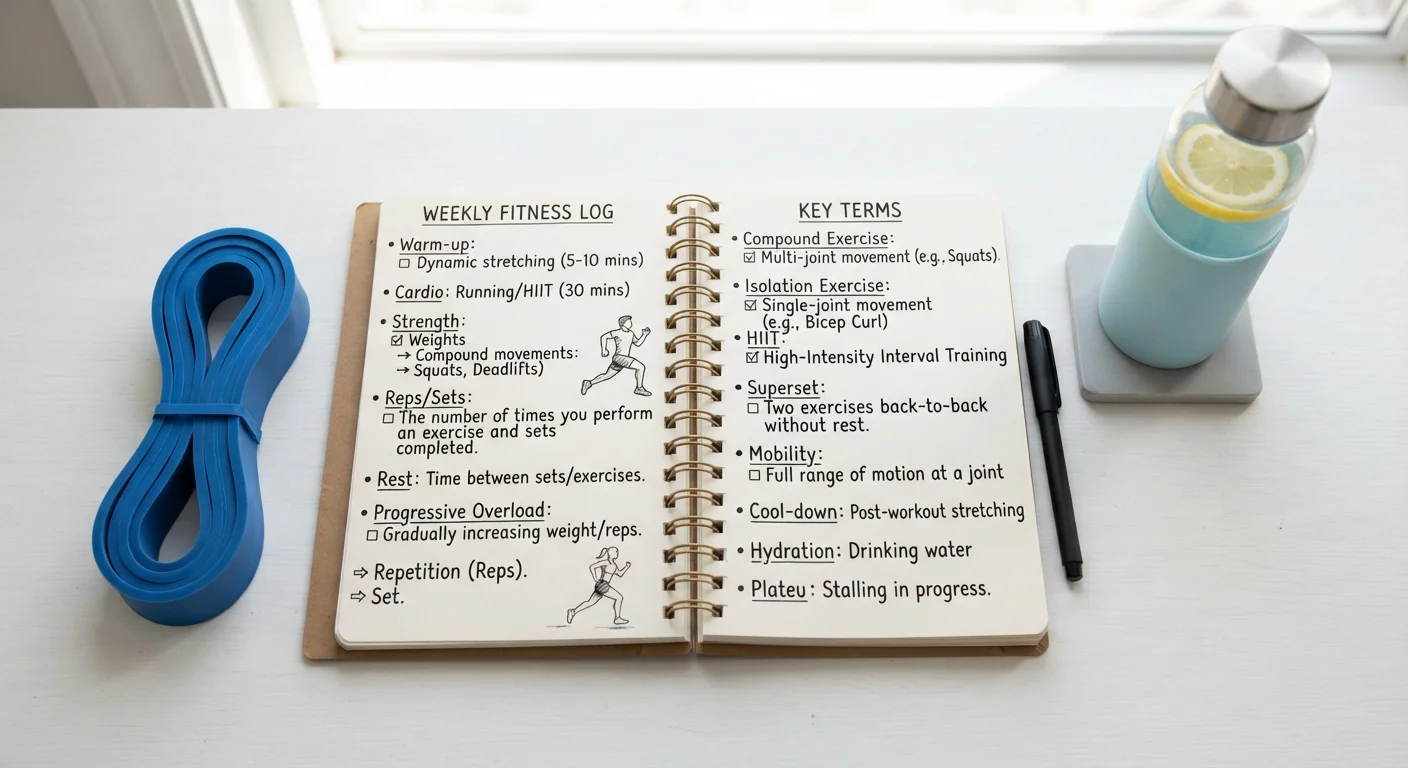 WEEKLY FITNESS LOG
• Warm-up:
☐ Dynamic stretching (5-10 mins)
• Cardio: Running/HIIT (30 mins)
• Strength:
☑ Weights
→ Compound movements:
→ Squats, Deadlifts)
• Reps/Sets:
☐ The number of times you perform
an exercise and sets
completed.
• Rest: Time between sets/exercises.
• Progressive Overload:
☐ Gradually increasing weight/reps.
⇨ Repetition (Reps).
⇨ Set.
KEY TERMS
• Compound Exercise:
☑ Multi-joint movement (e.g., Squats).
• Isolation Exercise:
☑ Single-joint movement
(e.g., Bicep Curl)
• HIIT:
☑ High-Intensity Interval Training
• Superset:
☐ Two exercises back-to-back
without rest.
• Mobility:
☐ Full range of motion at a joint
• Cool-down: Post-workout stretching
• Hydration: Drinking water
• Plateu: Stalling in progress.